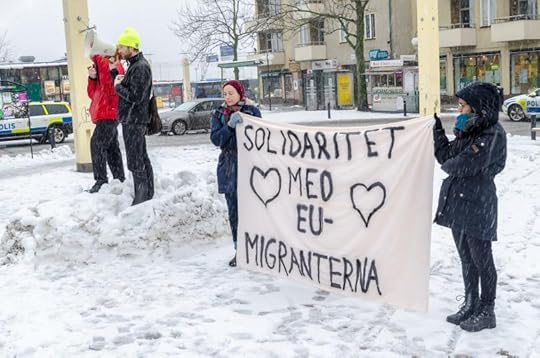 SOLIDARITET
MED
EU-
MIGRANTERNA